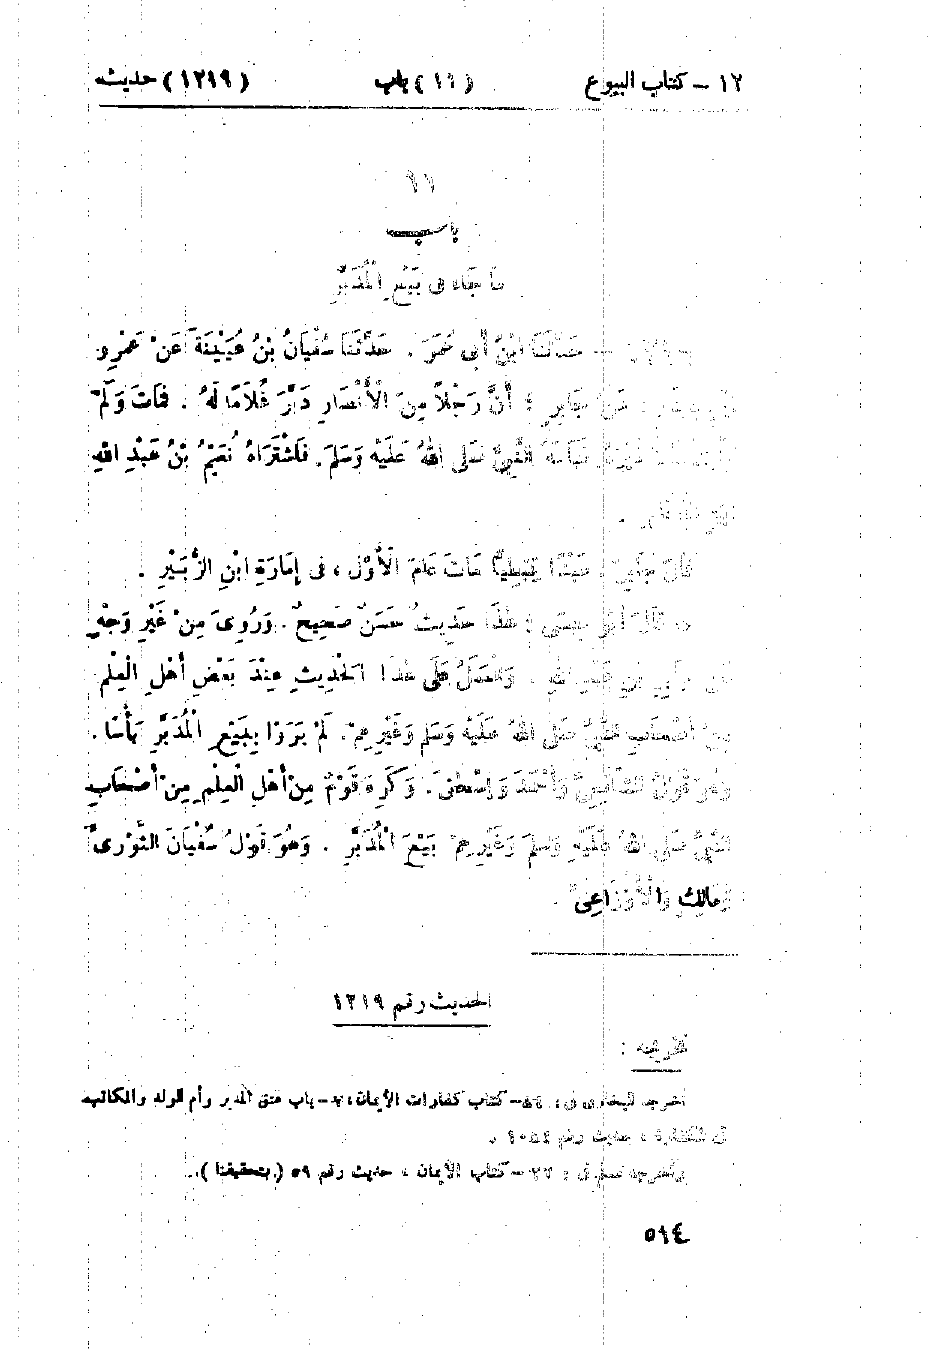 ١٢ – كتاب البيوع (١١) باب (١٢١٩) حديث
١١
باب
مَا جَاءَ فِى بَيْعِ الْمُدَبَّرِ
حَدَّثَنَا ابْنُ أَبِى عُمَرَ . حَدَّثَنَا سُفْيَانُ بْنُ عُيَيْنَةَ عَنْ عَمْرِو
عَنْ جَابِرٍ ؛ أَنَّ رَجُلاً مِنَ الْأَنْصَارِ دَبَّرَ غُلَامًا لَهُ . فَمَاتَ وَلَمْ
فَبَاعَهُ النَّبِىُّ صَلَّى اللهُ عَلَيْهِ وَسَلَّمَ. فَاشْتَرَاهُ نُعَيْمُ بْنُ عَبْدِ اللهِ
قَالَ جَابِرٌ : عَبْدًا قِبْطِيًّا مَاتَ عَامَ الْأَوَّلِ ، فِى إِمَارَةِ ابْنِ الزُّبَيْرِ .
• قَالَ أَبُو عِيسَى : هٰذَا حَدِيثٌ حَسَنٌ صَحِيحٌ . وَرُوِىَ مِنْ غَيْرِ وَجْهٍ
عَنْ جَابِرِ بْنِ عَبْدِ اللهِ . وَالْعَمَلُ عَلَى هٰذَا الْحَدِيثِ عِنْدَ بَعْضِ أَهْلِ الْعِلْمِ
مِنْ أَصْحَابِ النَّبِىِّ صَلَّى اللهُ عَلَيْهِ وَسَلَّمَ وَغَيْرِهِمْ. لَمْ يَرَوْا بِبَيْعِ الْمُدَبَّرِ بَأْسًا .
وَهُوَ قَوْلُ الشَّافِعِىِّ وَأَحْمَدَ وَإِسْحٰقَ . وَكَرِهَ قَوْمٌ مِنْ أَهْلِ الْعِلْمِ مِنْ أَصْحَابِ
النَّبِىِّ صَلَّى اللهُ عَلَيْهِ وَسَلَّمَ وَغَيْرِهِمْ بَيْعَ الْمُدَبَّرِ . وَهُوَ قَوْلُ سُفْيَانَ الثَّوْرِىِّ
وَمَالِكٍ وَالْأَوْزَاعِىِّ
الحديث رقم ١٢١٩
تخريجه :
أخرجه البخارى فى : ٨٤– كتاب كفارات الأيمان، ٧– باب عتق المدبر وأم الولد والمكاتب
فى الكفارة ، حديث رقم ١٠٥٤ .
وأخرجه مسلم فى : ٢٧ – كتاب الأيمان ، حديث رقم ٥٩ ( بتحقيقنا ).
٥١٤